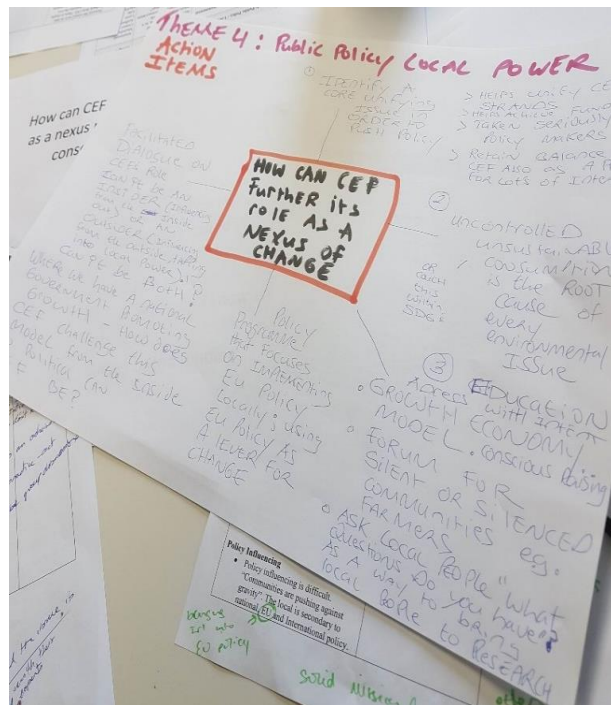 THEME 4: Public Policy LOCAL POWER
ACTION
ITEMS
① IDENTIFY A
CORE UNIFYING
ISSUE IN
ORDER TO
PUSH POLICY
> HELPS UNIFY CE
STRANDS
> HELPS ACHIEVE FUND
> TAKEN SERIOUSLY
POLICY MAKERS
> Retain BALANCE
CEF ALSO AS A H
FOR LOTS OF INTER
HOW CAN CEF
further its
role AS A
NEXUS OF
CHANGE
②
UNCONTROLLED
UNSUSTAINABLE
CONSUMPTION
is the ROOT
CAUSE OF
every
environmental
ISSUE
OR
this
within
SDGs
③
EDUCATION
Across with INTENT
• GROWTH ECONOMY
MODEL. conscious Raising
• FORUM FOR
SILENT OR SILENCED
COMMUNITIES eg.
FARMERS
• ASK LOCAL PEOPLE "WHAT
QUESTIONS DO YOU HAVE?"
AS A WAY TO bring
local PEOPLE to RESEARCH
POLICY
PROGRAMME
that FOCUSES
ON IMPLEMENTING
EU POLICY
LOCALLY; using
EU POLICY AS
A LEVER FOR
CHANGE
FACILITATED
DIALOGUE ON
CEFs Role
INSIDER
inside
out) or AN
OUTSIDER (
from the outside
into local Power)?
CAN IT BE BOTH?
Where we have A national
Government Promoting
GROWTH – HOW does
CEF challenge this
MODEL from the inside
POLITICAL CAN
BE?
How can CEF
as a nexus
cons
Policy Influencing
• Policy influencing is difficult.
"Communities are pushing against
gravity". The local is secondary to
national, EU and International policy.
EU policy
solid